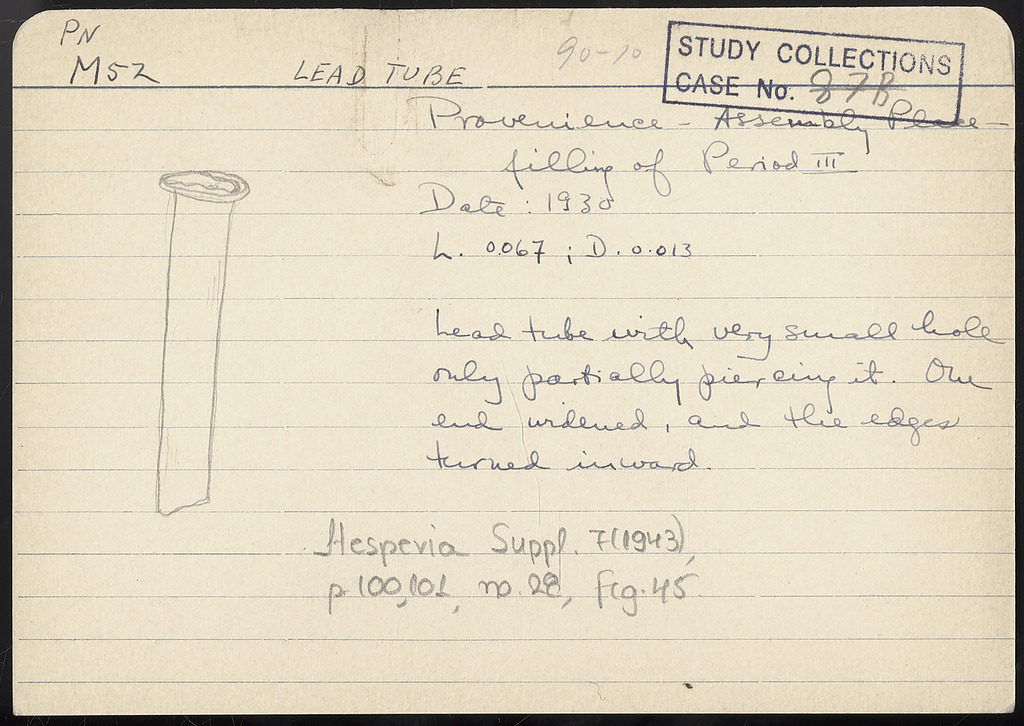 PN
M52 LEAD TUBE 90-70
STUDY COLLECTIONS
CASE No. 87B
Provenience - Assembly Place -
filling of Period III
Date : 1930
L. 0.067 ; D. 0.013
Lead tube with very small hole
only partially piercing it. One
end widened, and the edges
turned inward.
Hesperia Suppl. 7(1943),
p. 100,101, no. 28, fig. 45